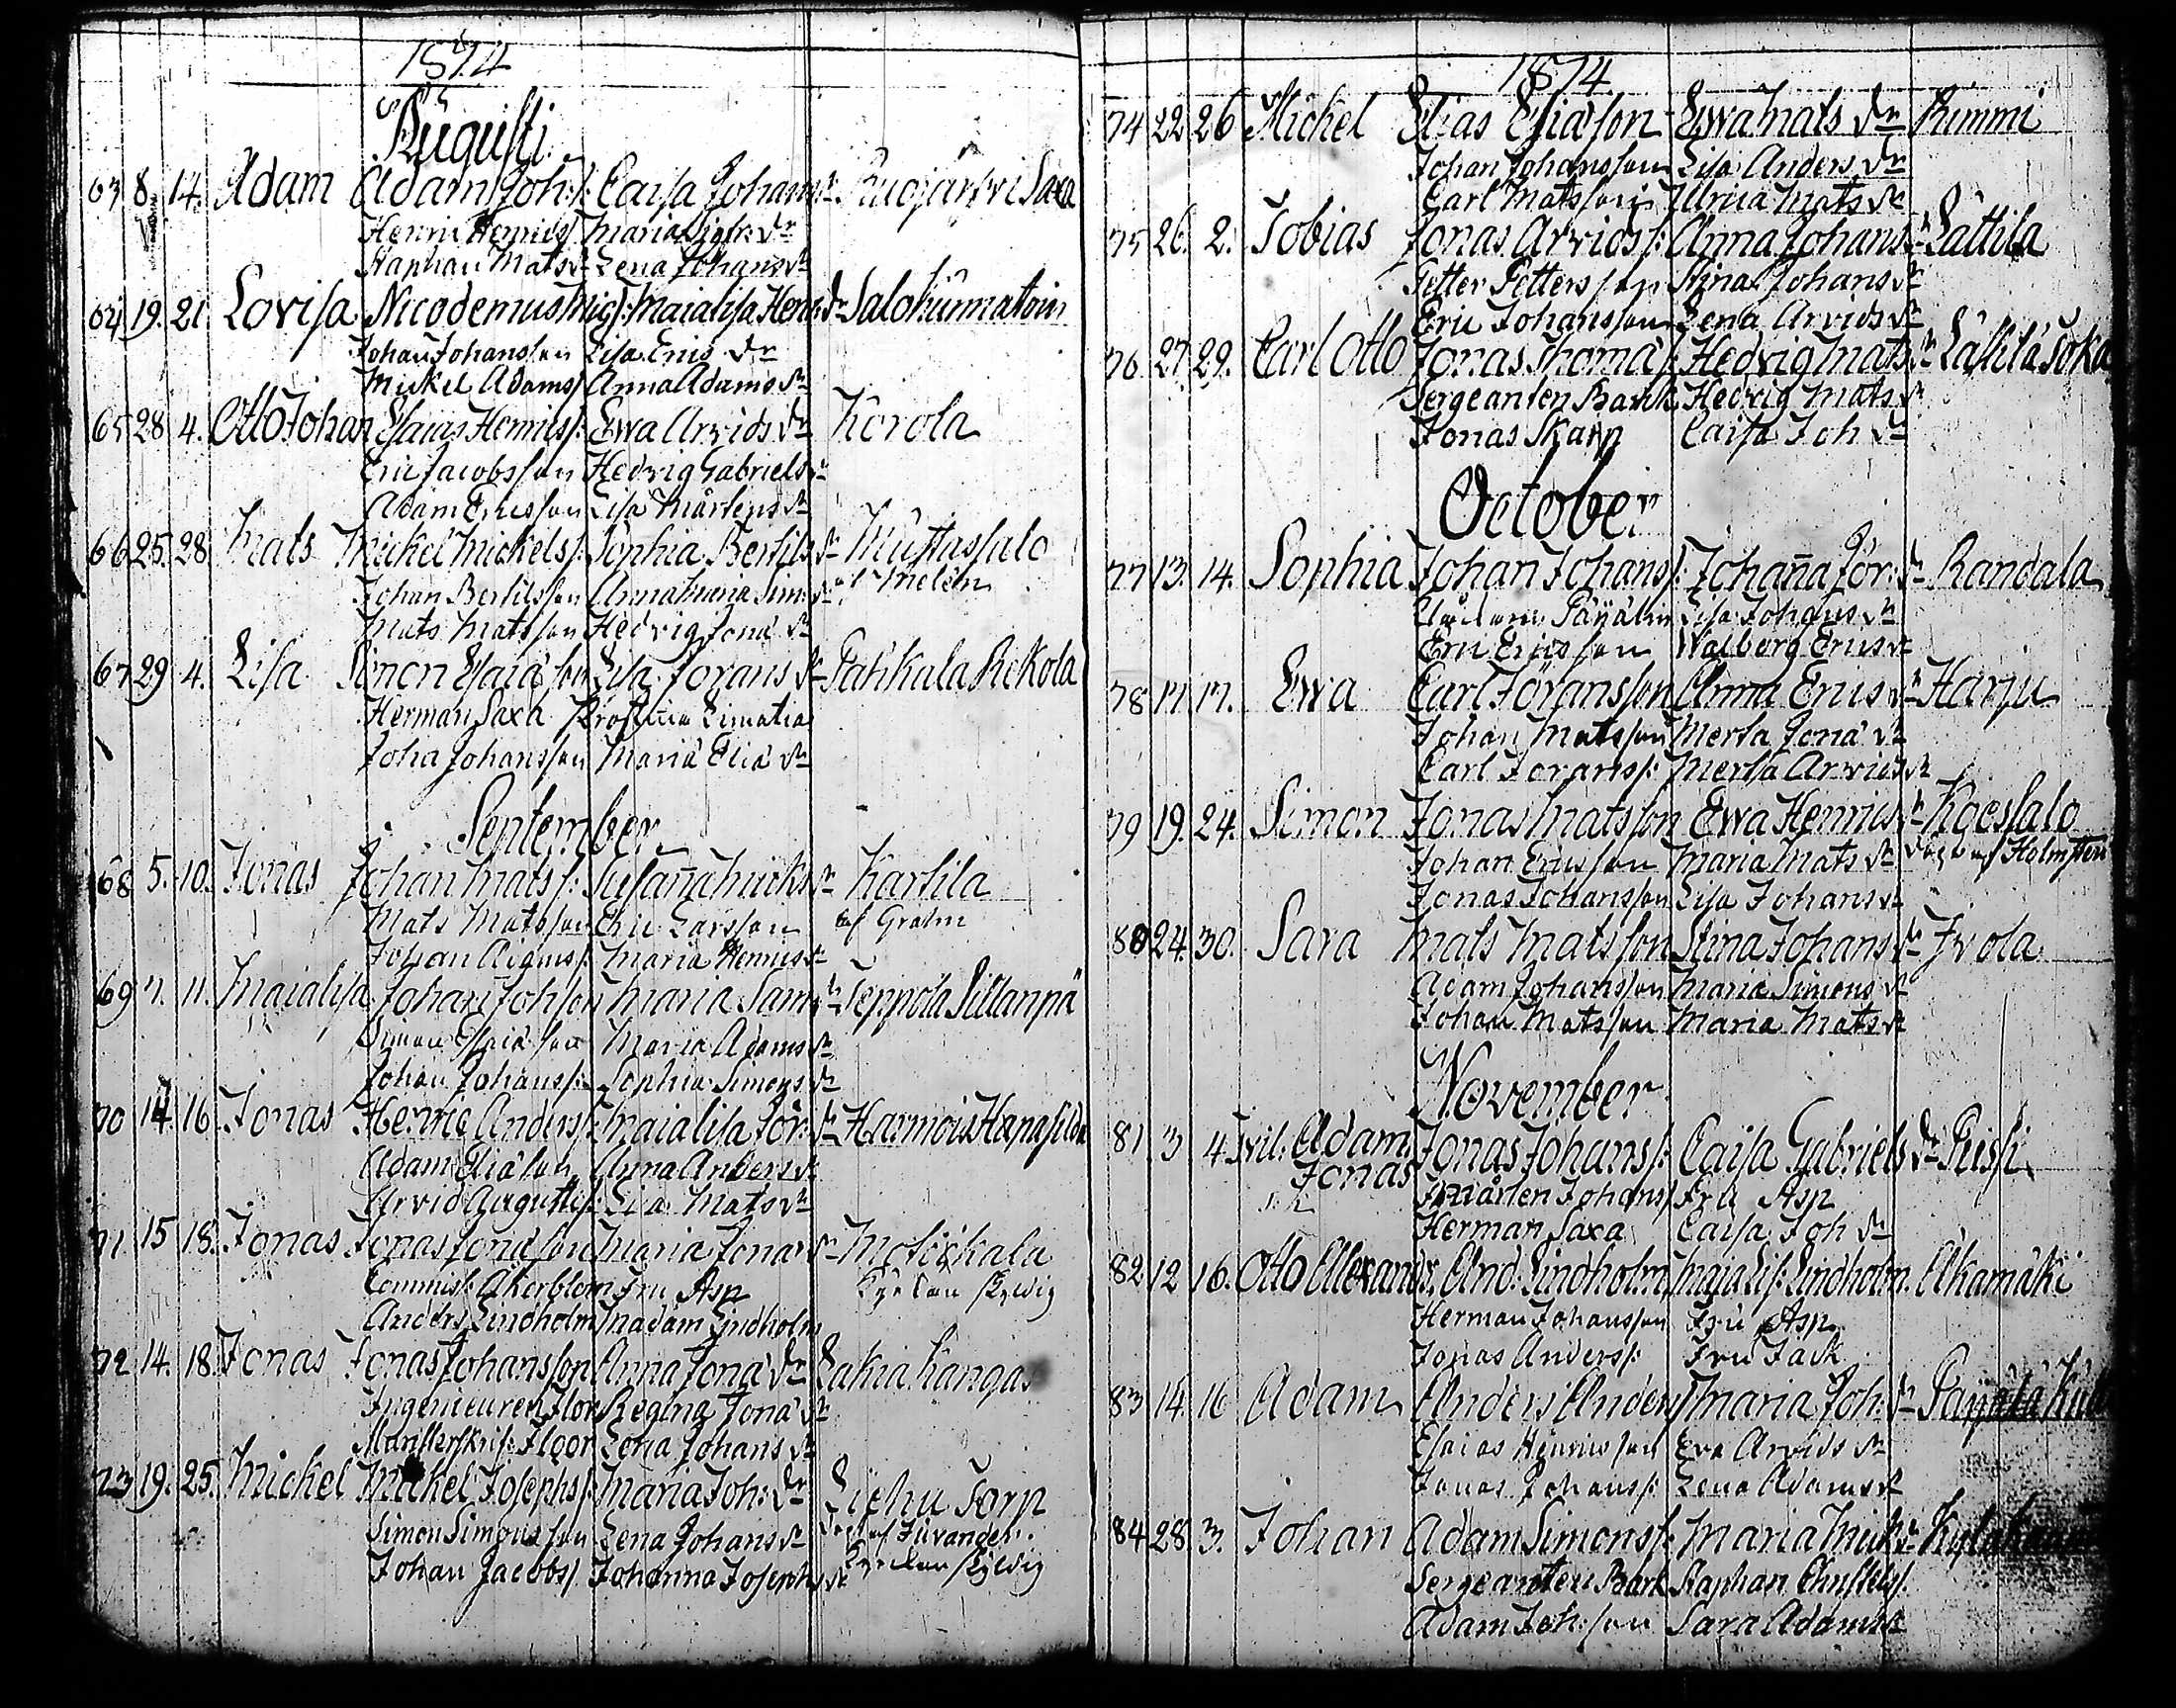 1814
Augusti
63 8. 14. Adam Adam Joh:s/: Caisa Johans dr Ruojärwi Saxa
Henric Henrics/ Maria Sigfr: dr
Staphan Mats Lena Johans dr
64 19. 21 Lovisa Nicodemus Mich/: Maialisa Henr dr
Johan Johansson Lisa Erics dr
Mickel Adams/ Anna Adams dr
65 28 4. Otto Johan Esaias Henrics/: Ewa Arvids dr Korola
Eric Jacobsson Hedvig Gabriels dr
Adam Ericsson Lisa Mårtens dr
66 25. 28 Mats Mickel Mickels/: Sophia Bertils dr Mustassalo
Johan Bertilsson Anna Maria Sim: dr Melen
Mats Matsson Hedvig Jona dr
67 29 4. Lisa Simon Esaiasson Lisa Jorans dr Pätkala Rekola
Herman Saxa
Joha Johansson Maria Elia dr
September
68 5. 10. Jonas Johan Mats/: Susaña Mick dr Karsila
Mats Matsson Eric Larsson af Gralm
Johan Maria Henrics dr
69 7. 11. Maialisa Johan Johsson Maria Sam dr Seppola Sillanpä
Simon Esaiasson Maria Adams dr
Johan Johans/: Sophia Simons dr
70 14 16 Jonas Henric Anders/: Maialisa Jör: dr
Adam Eliasson Anna Anders dr
Arvid Mats dr
71 15 18. Jonas Jonas Jonasson Maria Jonae dr
Commiss: Åkerblom Fru Asp
Anders Lindholm Madam Lindholm
72 14. 18 Jonas Jonas Johansson Anna Jona dr
Ingenieuren Flor Regina Jona dr
Floor Lena Johans dr
73 19. 25. Mickel Mickel Josephs/: Maria Joh: dr Torp
Simon Simonsson Lena Johans dr
Johan Jacobs/ Johanna Josephs dr
1814
74 22 26 Mickel Elias Eliasson Ewa Mats dr Rimmi
Johan Johansson Lisa Anders dr
Carl Matsson Ulrica Mats dr
75 26. 2. Tobias Jonas Arvids/: Anna Johans dr Lättilä
Petter Pettersson Stina Johans dr
Eric Johansson Lena Arvids dr
76 27. 29. Carl Otto Jonas Thomas/ Hedvig Mats dr
Sergeanten Barck Hedvig Mats dr
Jonas Skarp Caisa Joh dr
October
77 13. 14. Sophia Johan Johans/: Johaña Jör: dr Randala
Lisa Johans dr
Eric Ericsson Walborg Erics dr
78 17. 17. Ewa Carl Jöransson Anna Erics dr Harju
Johan Matsson Merta Jona dr
Carl Jorans/: Merta Arvids dr
79 19. 24. Simon Jonas Matsson Ewa Henrics dr Koessalo
Johan Ericsson Maria Mats dr af Holmsten
Jonas Johansson Lisa Johans dr
80 24. 30. Sara Mats Matsson Stina Johans dr Ivola
Adam Johansson Maria Simons dr
Johan Matsson Maria Mats dr
November
81 3 4 Tvil: Adam Jonas Jonas Johans/: Caisa Gabriels dr Peissi
Mårten Johans/ Fru Asp
Herman Saxa Caisa Joh dr
82 12 16. Otto Allexand. And: Lindholm Maja Lis: Lindholm. Ahamäki
Herman Johansson Fru Asp
Jonas Anders/: Fru Jack
83 14. 16 Adam Anders Anders/ Maria Joh: dr
Esaias Henricsson Eva Arvids dr
Jonas Johans/: Lena Adams dr
84 28 3. Johan Adam Simons/: Maria Mich dr
Sergeanten Bark Staphan
Adam Joh:sson Sara Adams dr